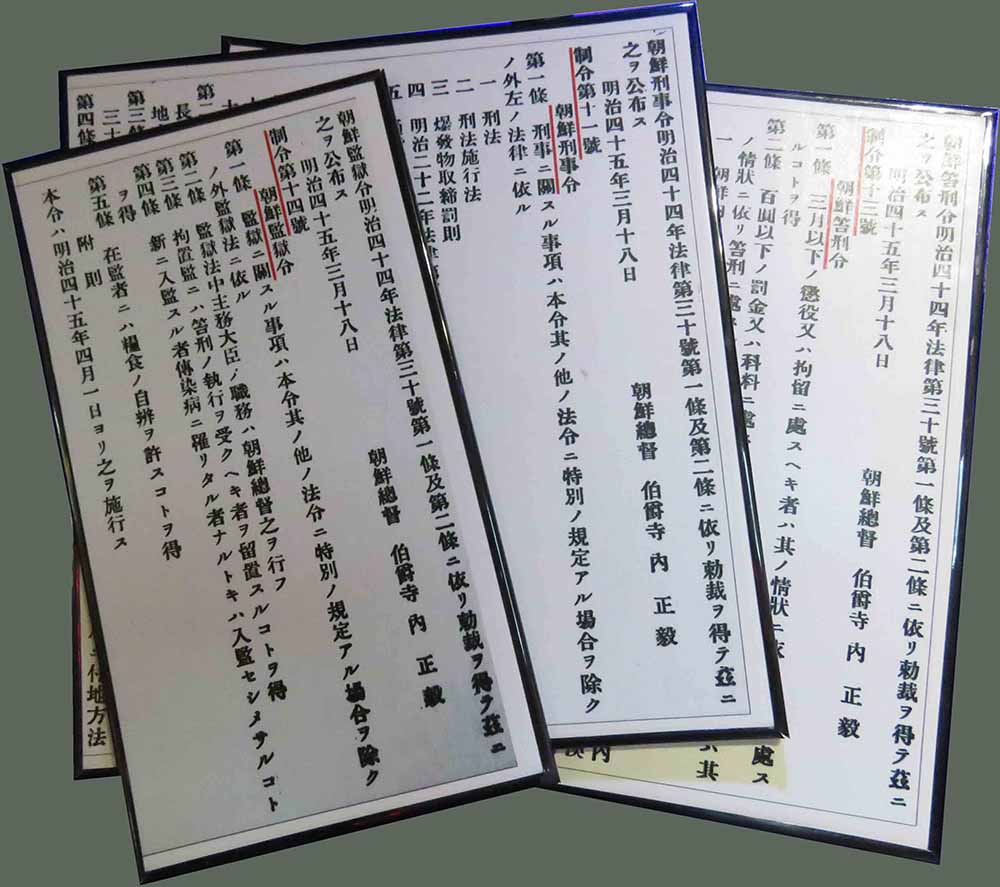 朝鮮笞刑令明治四十四年法律第三十號第一條及第二條ニ依リ勅裁ヲ得テ茲ニ
之ヲ公布ス
明治四十五年三月十八日
朝鮮總督 伯爵寺内 正毅
制令第十三號
朝鮮笞刑令
第一條 三月以下ノ懲役又ハ拘留ニ處スヘキ者ハ其ノ情狀ニ依
ルコトヲ得
第二條 百圓以下ノ罰金又ハ科料ニ處
ノ情狀ニ依リ笞刑ニ處
一 朝鮮内
處ス
ハ其
内
朝鮮刑事令明治四十四年法律第三十號第一條及第二條ニ依リ勅裁ヲ得テ茲ニ
之ヲ公布ス
明治四十五年三月十八日
朝鮮總督 伯爵寺内 正毅
制令第十一號
朝鮮刑事令
第一條 刑事ニ關スル事項ハ本令其ノ他ノ法令ニ特別ノ規定アル場合ヲ除ク
ノ外左ノ法律ニ依ル
一 刑法
二 刑法施行法
三 爆發物取締罰則
四 明治二十二年法律第
五
朝鮮監獄令明治四十四年法律第三十號第一條及第二條ニ依リ勅裁ヲ得テ茲ニ
之ヲ公布ス
明治四十五年三月十八日
朝鮮總督 伯爵寺内 正毅
制令第十四號
朝鮮監獄令
第一條 監獄ニ關スル事項ハ本令其ノ他ノ法令ニ特別ノ規定アル場合ヲ除ク
ノ外監獄法ニ依ル
第二條 監獄法中主務大臣ノ職務ハ朝鮮總督之ヲ行フ
拘置監ニハ笞刑ノ執行ヲ受クヘキ者ヲ留置スルコトヲ得
第三條 新ニ入監スル者傳染病ニ罹リタル者ナルトキハ入監セシメサルコト
ヲ得
第四條 在監者ニハ糧食ノ自辨ヲ許スコトヲ得
第五條
附則
本令ハ明治四十五年四月一日ヨリ之ヲ施行ス
第二
長
地
第三條
三十
第四條
付地方法